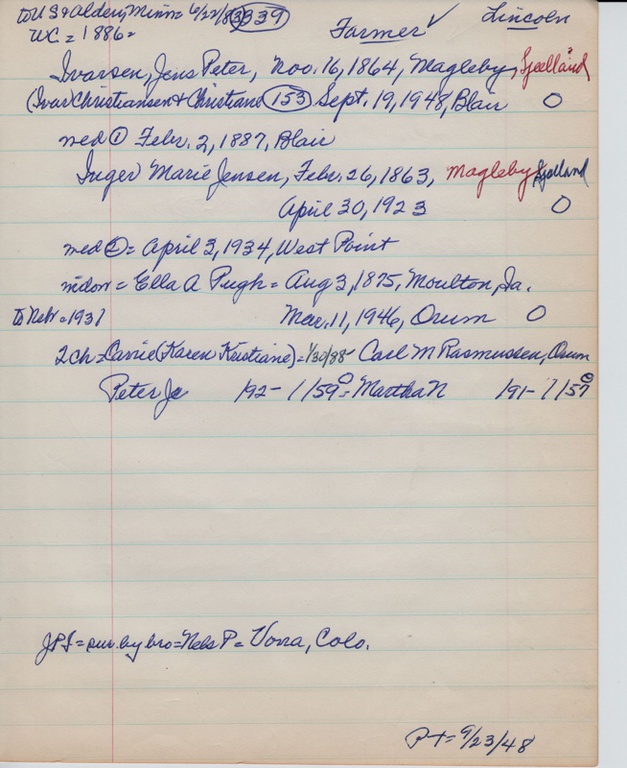 to US = Alden, Minn = 6/22/83 339 Farmer ✓ Lincoln
WC = 1886 =
Ivarsen, Jens Peter, Nov. 16, 1864, Magleby, Sjælland
(Ivar Christiansen + Christiane (153) Sept. 19, 1948, Blair O
med ① Febr. 2, 1887, Blair
Inger Marie Jensen, Febr. 26, 1863, Magleby Sjælland
April 30, 1923 O
med ② = April 3, 1934, West Point
widow = Ella A Pugh = Aug 3, 1875, Moulton, Ia.
to Nebr = 1937 Mar. 11, 1946, Orum O
2 ch = Carrie (Karen Kristiane) = 1/30/88 - Carl M Rasmussen, Orum
Peter Jc 1/92 - 1/59 O = Martha N 1/91 - 7/57 O
JPI = sur. by bro = Nels P = Vona, Colo.
P-T = 9/23/48